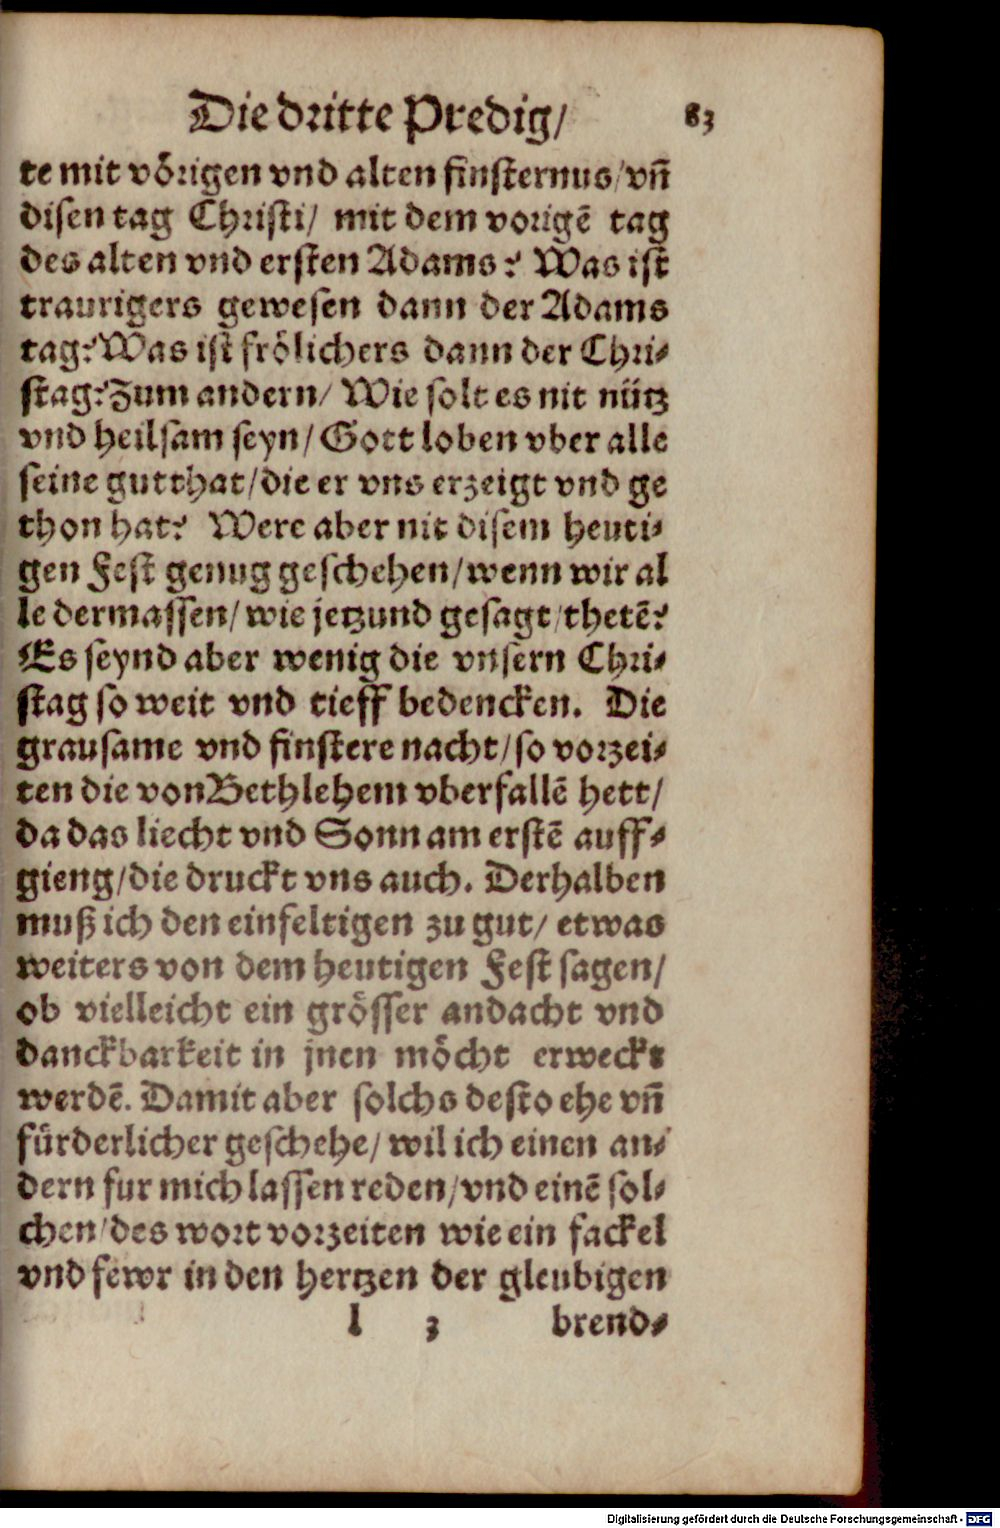 Die dritte Predig/ 83
te mit võrigen vnd alten finsternus/vñ
disen tag Christi/ mit dem vorigẽ tag
des alten vnd ersten Adams? Was ist
traurigers gewesen dann der Adams
tag?Was ist frölichers dann der Chri-
stag?Zum andern/ Wie solt es nit nütz
vnd heilsam seyn/ Gott loben vber alle
seine gutthat/die er vns erzeigt vnd ge
thon hat? Were aber nit disem heuti-
gen Fest genug geschehen/wenn wir al
le dermassen/ wie jetzund gesagt/thetẽ?
Es seynd aber wenig die vnsern Chri-
stag so weit vnd tieff bedencken. Die
grausame vnd finstere nacht/so vorzei-
ten die von Bethlehem vberfallẽ hett/
da das liecht vnd Sonn am erstẽ auff-
gieng/die druckt vns auch. Derhalben
muß ich den einfeltigen zu gut/ etwas
weiters von dem heutigen Fest sagen/
ob vielleicht ein grösser andacht vnd
danckbarkeit in jnen möcht erweckt
werdẽ. Damit aber solchs desto ehe vñ
fürderlicher geschehe/ wil ich einen an-
dern fur mich lassen reden/vnd einẽ sol-
chen/des wort vorzeiten wie ein fackel
vnd fewr in den hertzen der gleubigen
l 3 brend-
Digitalisierung gefördert durch die Deutsche Forschungsgemeinschaft - DFG